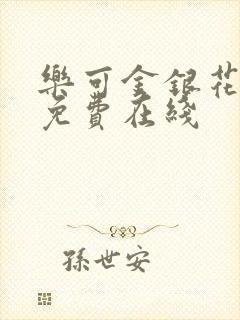 樂可金銀花
免費在綫
孫世安